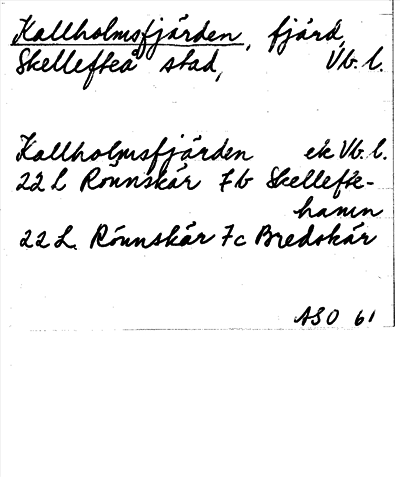 Kallholmsfjärden, fjärd,
Skellefteå stad, Vb. l.
Kallholmsfjärden ek Vb. l.
22 L Rönnskär 7b Skellefte-
hamn
22 L. Rönnskär 7c Bredskär
ASO 61